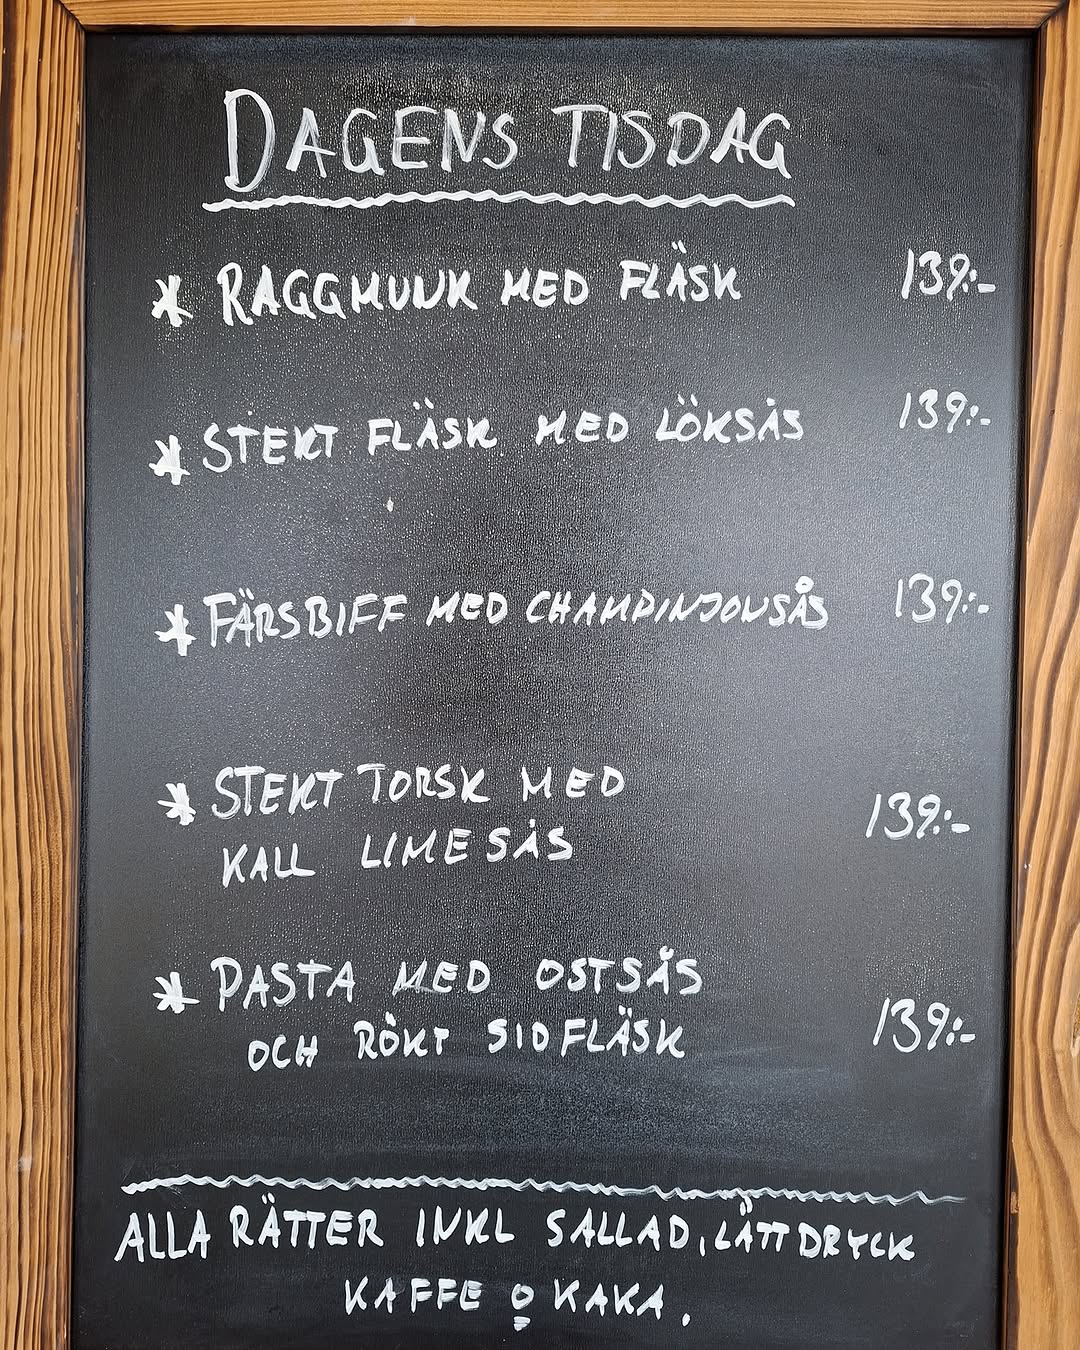 DAGENS TISDAG
* RAGGMUNK MED FLÄSK 139:-
* STEKT FLÄSK MED LÖKSÅS 139:-
* FÄRSBIFF MED CHAMPINJONSÅS 139:-
* STEKT TORSK MED
KALL LIMESÅS 139:-
* PASTA MED OSTSÅS
OCH RÖKT SIDFLÄSK 139:-
ALLA RÄTTER INKL SALLAD, LÄTTDRYCK
KAFFE O KAKA.